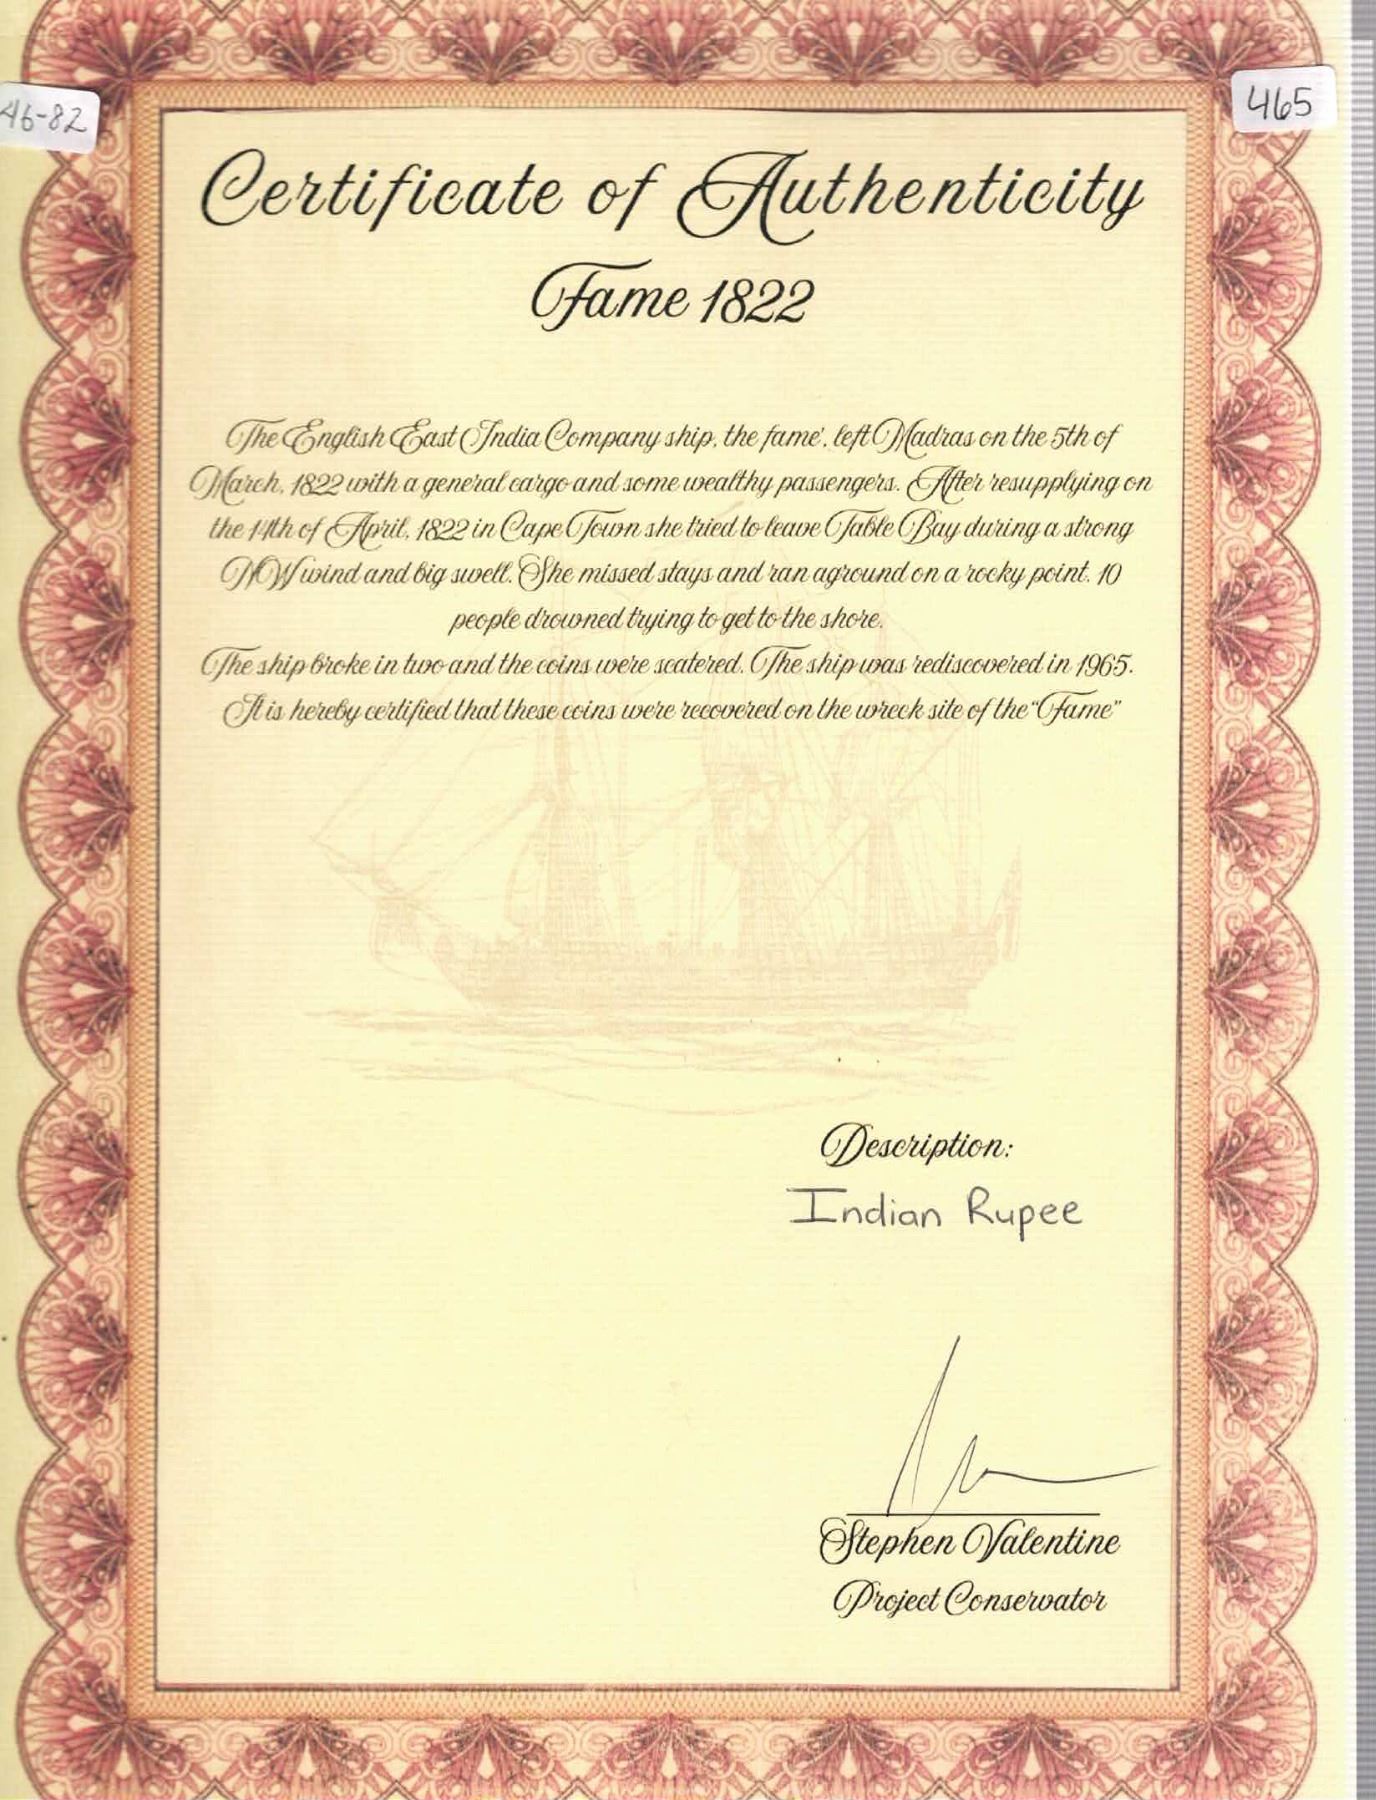 46-82
465
Certificate of Authenticity
Fame 1822
The English East India Company ship, the fame', left Madras on the 5th of
March, 1822 with a general cargo and some wealthy passengers. After resupplying on
the 14th of April, 1822 in Cape Town she tried to leave Table Bay during a strong
NW wind and big swell. She missed stays and ran aground on a rocky point. 10
people drowned trying to get to the shore.
The ship broke in two and the coins were scatered. The ship was rediscovered in 1965.
It is hereby certified that these coins were recovered on the wreck site of the "Fame"
Description:
Indian Rupee
Stephen Valentine
Project Conservator